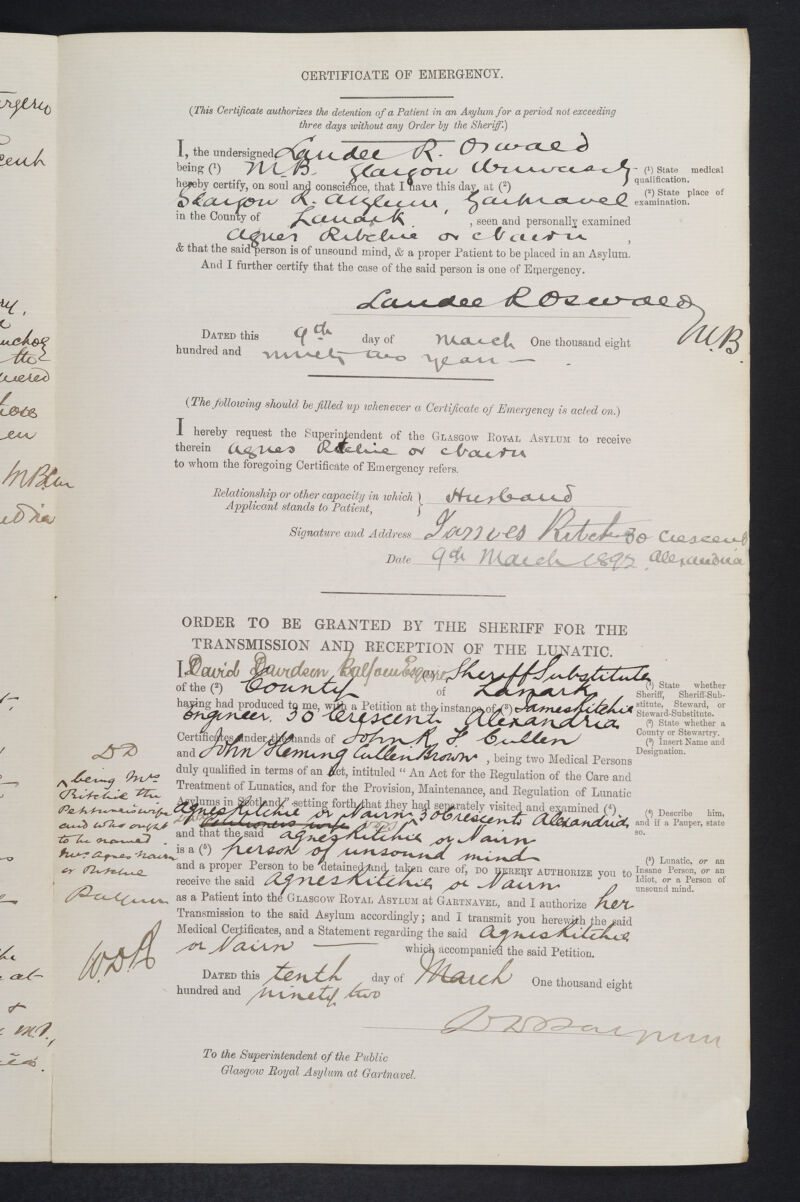 CERTIFICATE OF EMERGENCY.
(This Certificate authorizes the detention of a Patient in an Asylum for a period not exceeding
three days without any Order by the Sheriff.)
I, the undersigned Landel R. Oswald
being (¹) M.B. Glasgow University
hereby certify, on soul and conscience, that I have this day, at (²)
Glasgow R. Asylum, Gartnavel
in the County of Lanark, seen and personally examined
Agnes Ritchie or Nairn,
& that the said person is of unsound mind, & a proper Patient to be placed in an Asylum.
And I further certify that the case of the said person is one of Emergency.
(¹) State medical
qualification.
(²) State place of
examination.
Landel R Oswald
M.B.
DATED this 9th day of March One thousand eight
hundred and ninety two years
(The following should be filled up whenever a Certificate of Emergency is acted on.)
I hereby request the Superintendent of the GLASGOW ROYAL ASYLUM to receive
therein Agnes Ritchie or Nairn
to whom the foregoing Certificate of Emergency refers.
Relationship or other capacity in which
Applicant stands to Patient, } Husband
Signature and Address James Ritchie 30 Crescent
Date 9th March 1892. Alexandria
ORDER TO BE GRANTED BY THE SHERIFF FOR THE
TRANSMISSION AND RECEPTION OF THE LUNATIC.
I, David Davidson Balfour Esquire, Sheriff Substitute
of the (²) County of Lanark
having had produced to me, with a Petition at the instance of (³) James Ritchie
Engineer. 30 Crescent Alexandria
Certificates under the hands of John R. S. Cullen
and John Fleming Cullen Brown, being two Medical Persons
duly qualified in terms of an Act, intituled "An Act for the Regulation of the Care and
Treatment of Lunatics, and for the Provision, Maintenance, and Regulation of Lunatic
Asylums in Scotland," setting forth that they had separately visited and examined (⁴)
Agnes Ritchie or Nairn 30 Crescent Alexandria
Petitioners wife
and that the said Agnes Ritchie or Nairn
is a (⁵) person of unsound mind
and a proper Person to be detained and taken care of, DO HEREBY AUTHORIZE you to
receive the said Agnes Ritchie or Nairn
as a Patient into the GLASGOW ROYAL ASYLUM AT GARTNAVEL, and I authorize her
Transmission to the said Asylum accordingly; and I transmit you herewith the said
Medical Certificates, and a Statement regarding the said Agnes Ritchie
or Nairn which accompanied the said Petition.
DATED this tenth day of March One thousand eight
hundred and ninety two
(¹) State whether
Sheriff, Sheriff-Sub-
stitute, Steward, or
Steward-Substitute.
(²) State whether a
County or Stewartry.
(³) Insert Name and
Designation.
(⁴) Describe him,
and if a Pauper, state
so.
(⁵) Lunatic, or an
Insane Person, or an
Idiot, or a Person of
unsound mind.
DD
being Mrs
Ritchie the
Petitioners wife
and who ought
to be named
Mrs Agnes Nairn
or Ritchie
Balfour
D D Balfour
To the Superintendent of the Public
Glasgow Royal Asylum at Gartnavel.